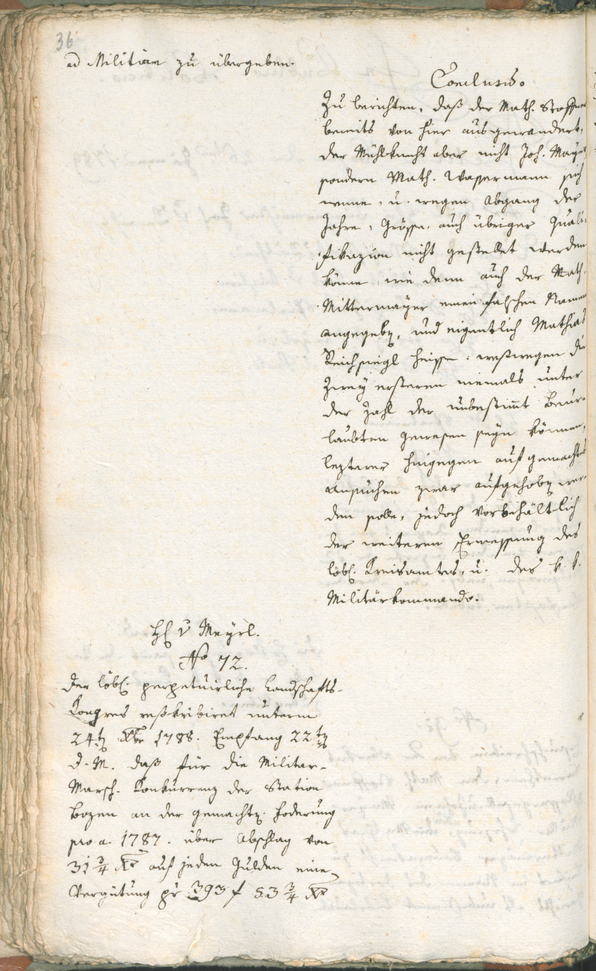 36
ad Militiam zu übergeben.
Conclusio.
Zu berichten, daß der Math. Stoffner
bereits von hier ausgewandert,
der Mühlknecht aber nicht Joh. Mayr
sondern Math. Wassermann sich
nenne, u. wegen Abgang der
Jahre, Grösse, auch übriger Quali-
fikazion nicht gestellet werden
könne, wie dann auch der Math.
Mittermayer einen falschen Namen
angegeben, und eigentlich Mathias
Reichsigl heisse: weswegen die
zwey ersteren niemals unter
der Zahl der unbestimt Beur-
laubten gewesen seyn können,
lezterer hingegen auf gemachtes
Ansuchen zwar aufgehoben wer-
den solle, jedoch vorbehältlich
der weiteren Ermessung des
löbl. Kreisamtes, u. der k. k.
Militärkommando.
H. v Meyrl.
No 72.
Der löbl. perpetuirliche Landschafts-
Kongres reskribiret unterm
24t. Xbr 1788. Empfang 22t.
d. M. daß für die Militar-
Marsch-Konkurrenz der Station
Bozen an der gemachten Foderung
pro a. 1787. über Abschlag von
31 2/4 Xr auf jeden Gulden eine
Vergütung pr 393 f 53 3/4 Xr